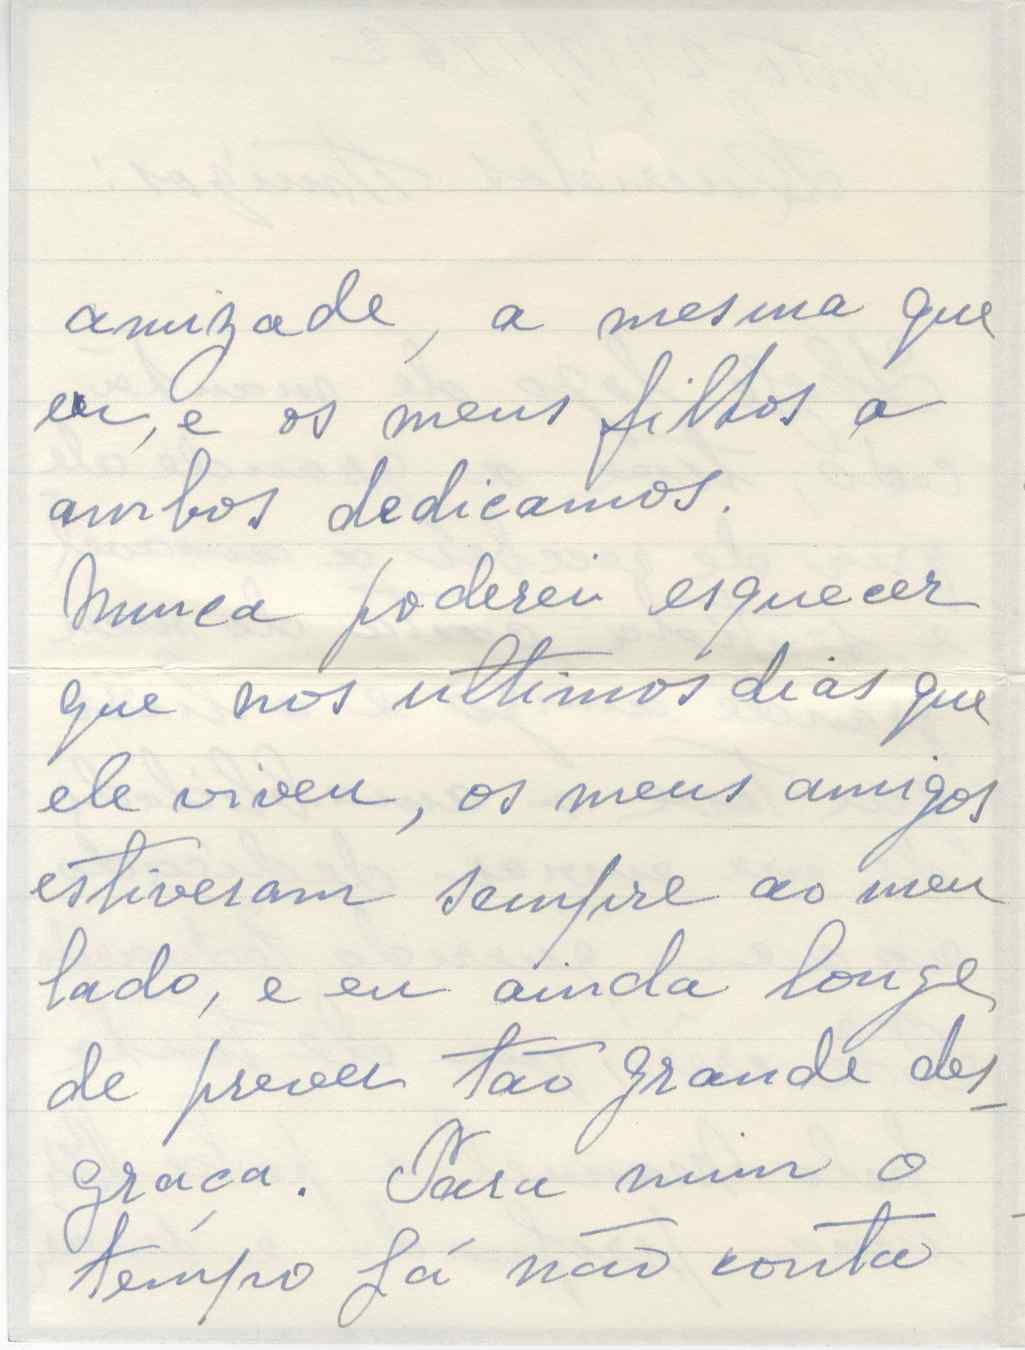 amizade, a mesma que
eu, e os meus filhos a
ambos dedicamos.
Nunca poderei esquecer
que nos ultimos dias que
ele viveu, os meus amigos
estiveram sempre ao meu
lado, e eu ainda longe
de prever tão grande des_
graça. Para mim o
tempo já não conta